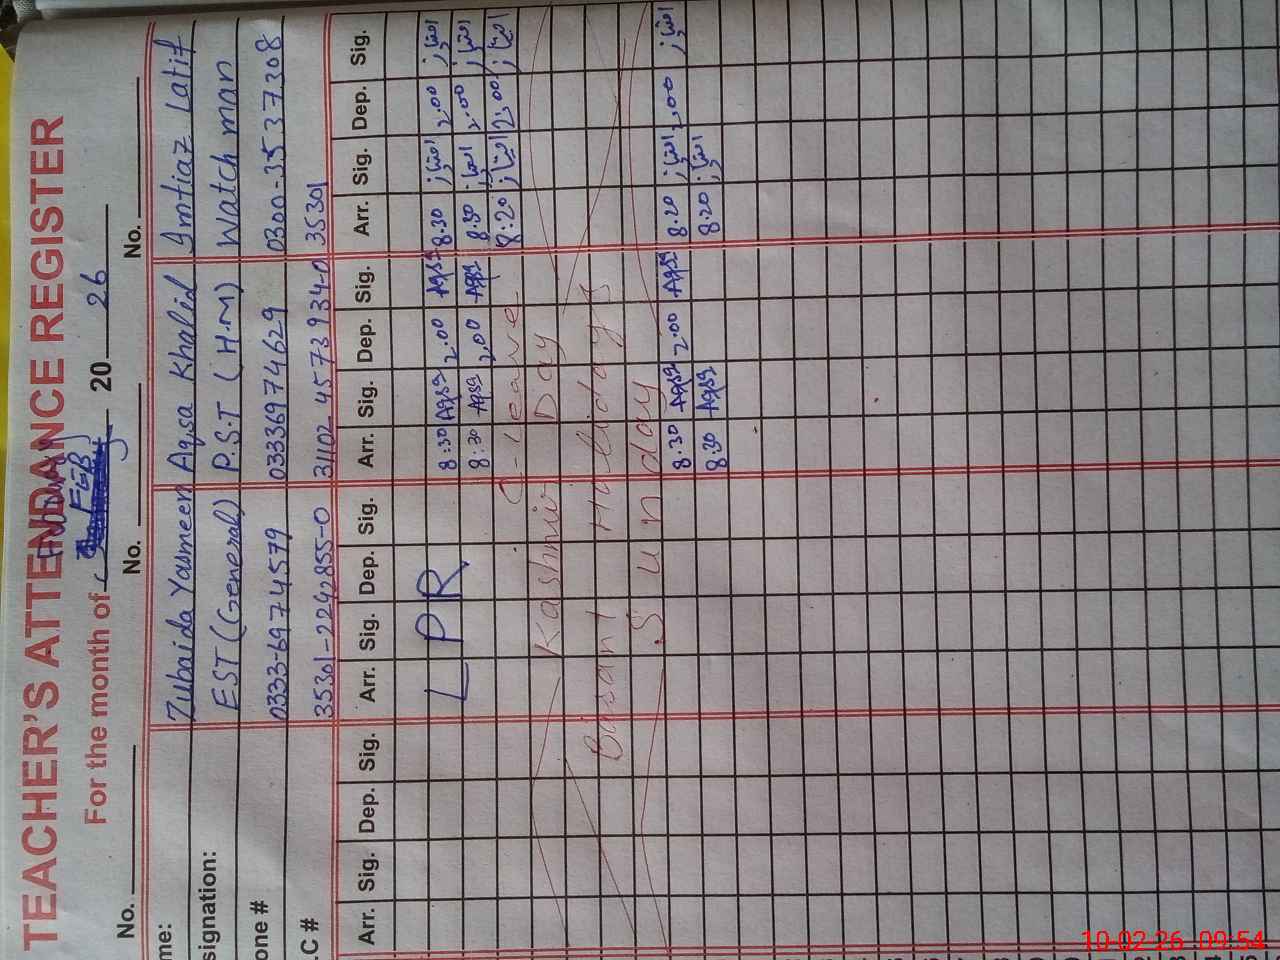 TEACHER'S ATTENDANCE REGISTER
For the month of FEB 20 26
No. No. No.
me: Zubaida Yasmeen Aqsa Khalid Imtiaz Latif
signation: EST (General) P.S.T (H.M) Watch man
one # 0333-6974579 03336974629 0300-3537308
.C # 35301-2242855-0 31102-4573934-0 35301
Arr. Sig. Dep. Sig. Arr. Sig. Dep. Sig. Arr. Sig. Dep. Sig. Arr. Sig. Dep. Sig.
LPR 8:30 Aqsa 2.00 Aqsa 8.30 امتیاز 2.00 امتیاز
8:30 Aqsa 2.00 Aqsa 8.30 امتیاز 2.00 امتیاز
C-leave 8:20 امتیاز 2.00 امتیاز
Kashmir Day
Basant Holidays
Sunday
8.30 Aqsa 2.00 Aqsa 8.20 امتیاز 2.00 امتیاز
8.30 Aqsa 8.20 امتیاز
10-02-26 09:54